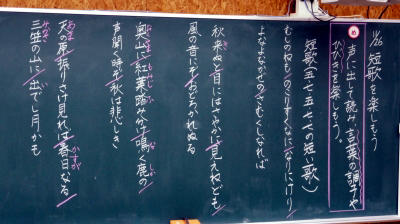 11/26 短歌を楽しもう
め 声に出して読み、言葉の調子や
ひびきを楽しもう。
短歌(五・七・五・七・七の短い歌)
むしのねも/のこりすくなに/なりにけり/
よなよなかぜの/さむくしなれば
秋来ぬと/目にはさやかに/見えねども/
風の音にぞ/おどろかれぬる
奥山に/紅葉踏み分け/鳴く鹿の/
声聞く時ぞ/秋は悲しき
天の原/振りさけ見れば/春日なる/
三笠の山に/出でし月かも